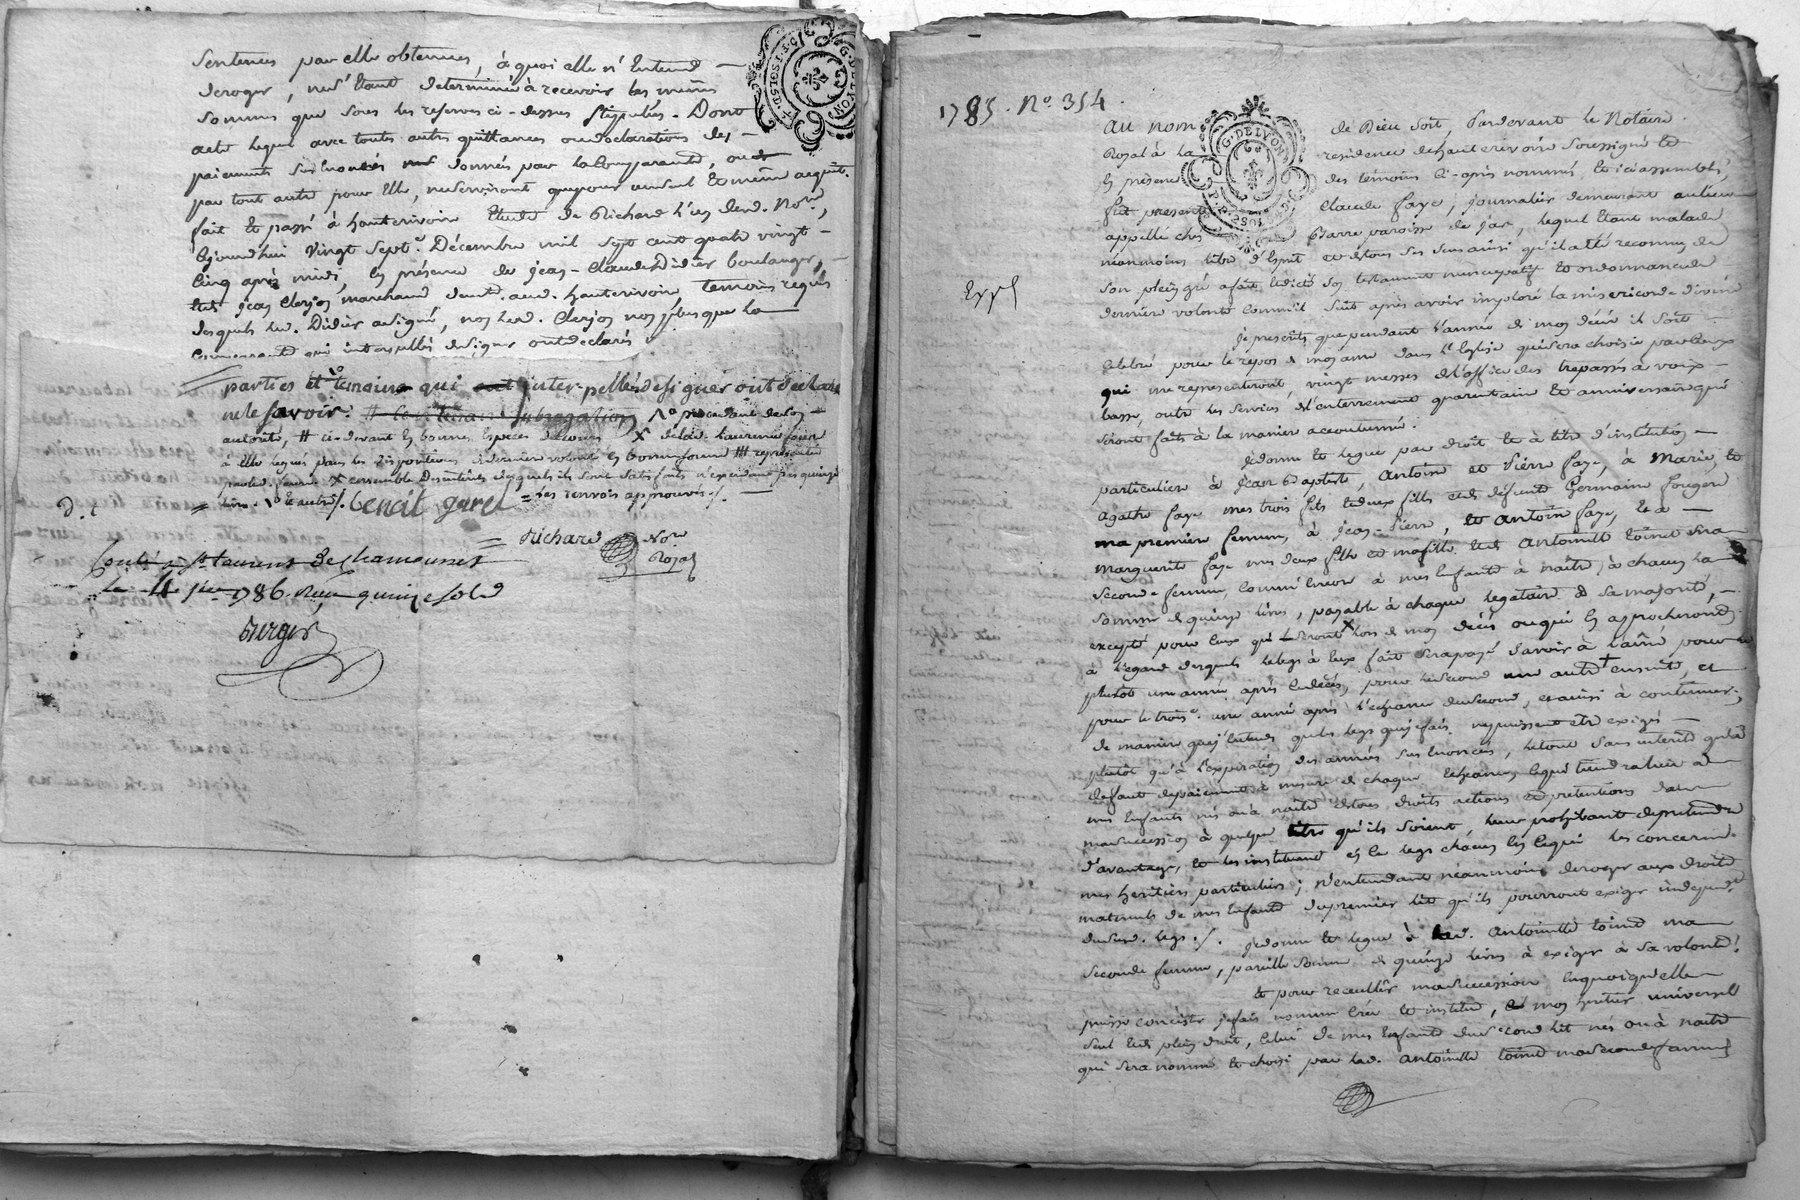 Sentences par elle obtenues, à quoi elle n'entend
deroger, ne s'etant determinée à recevoir les mêmes
sommes que sous les reserves ci-dessus stipulées. Dont
acte lequel avec toutes autres quittances ou declarations des
paiements donnés par la Comparante, ou
par tout autre pour elle, ne serviront que pour un seul et même acquit.
fait et passé à hauterivoire Etude de Richard l'un desd. Nores,
Cejourdhui vingt sept Décembre mil sept cent quatre vingt
Cinq après midi, En présence de jean-Claude Didier boulanger,
et de jean Clerjon marchand demt. aud. hauterivoire Temoins requis
desquels led. Didier a signé, non led. Clerjon non plus que la
comparante qui interpellés de signer ont declaré
parties et temoins qui inter-pellés de signer ont declaré
ne le savoir.
autorité, # ci-devant En bonnes Espèces de cours X
à elle legués dans les dispositions de derniere volonté
benoit garel = les renvois approuvés
Richard Nore
Royal
Conté à St. Laurent De Chamousset
le 4 1786. Reçu quinze sols
1785. No. 354.
G. DE LYON
au nom de Dieu soit, Pardevant le Notaire
Royal à la residence de hauterivoire Soussigné et
En présence des temoins Ci-après nommés, et ici assemblés,
fut present Claude faye, journalier demeurant au lieu
appellé chès Barre paroisse de jas, lequel Etant malade
néanmoins libre d'Esprit et de tous ses sens ainsi qu'il a été reconnu, de
son plein gré a fait et dicté son testament nuncupatif et ordonnance de
derniere volonté Comm'il suit après avoir imploré la misericorde divine
je prescrits que pendant l'année de mon décès il soit
Célébré pour le repos de mon ame dans l'Eglise qui sera choisie par Ceux
qui me representeront, vingt messes de l'office des trepassés à voix
basse, outre les services d'enterrement quarentaine et anniversaire qui
seront faits à la maniere accoutumée.
je donne et legue par droit et à titre d'institution
particuliere à jean Baptiste, Antoine et Pierre faye, à Marie, et
Agathe faye mes trois fils et deux filles et de défunte Germaine fougere
ma premiere femme, à jean-Pierre, et Antoine faye, et à
marguerite faye mes deux fils et ma fille et de Antoinette toinet ma
seconde femme, Comm'encore à mes Enfants à naitre, à chacun la
somme de quinze livres, payable à chaque legataire à sa majorité,
excepté pour Ceux qui seront X lors de mon décès ou qui En approcheront
à l'egard desquels le legs à Eux fait sera payé Savoir à l'ainé pour
plutot une année après led. décès, pour le second une autre + ensuite, et
pour le trois.e une année après l'echeance du second, et ainsi à continuer;
de maniere que j'entends que les legs que je fais ne puissent etre exigés
plutôt qu'à l'expiration des années sus Enoncées, le tout sans interêts qu'à
defaut de paiement à mesure de chaque Echeance, lequel tiendra lieu à
mes Enfants nés ou à naitre de tous droits actions et pretentions dans
ma succession à quelque titre qu'ils soient, leur prohibant de pretendre
d'avantage, et les instituant En ce legs chacun En ce qui les concerne
mes heritiers particuliers; n'entendant néanmoins deroger aux droits
maternels de mes Enfants du premier lit qu'ils pourront exiger independt.
dud. legs ./. je donne et legue à lad. Antoinette toinet ma
seconde femme, pareille somme de quinze livres à exiger à sa volonté;
et pour recueillir ma succession En quoi qu'elle
puisse concister je fais nomme Crée et institue, mon heritier universel
seul et de plein droit, Celui de mes Enfants du second lit nés ou à naitre
qui sera nommé et choisi par lad. Antoinette toinet ma seconde femme